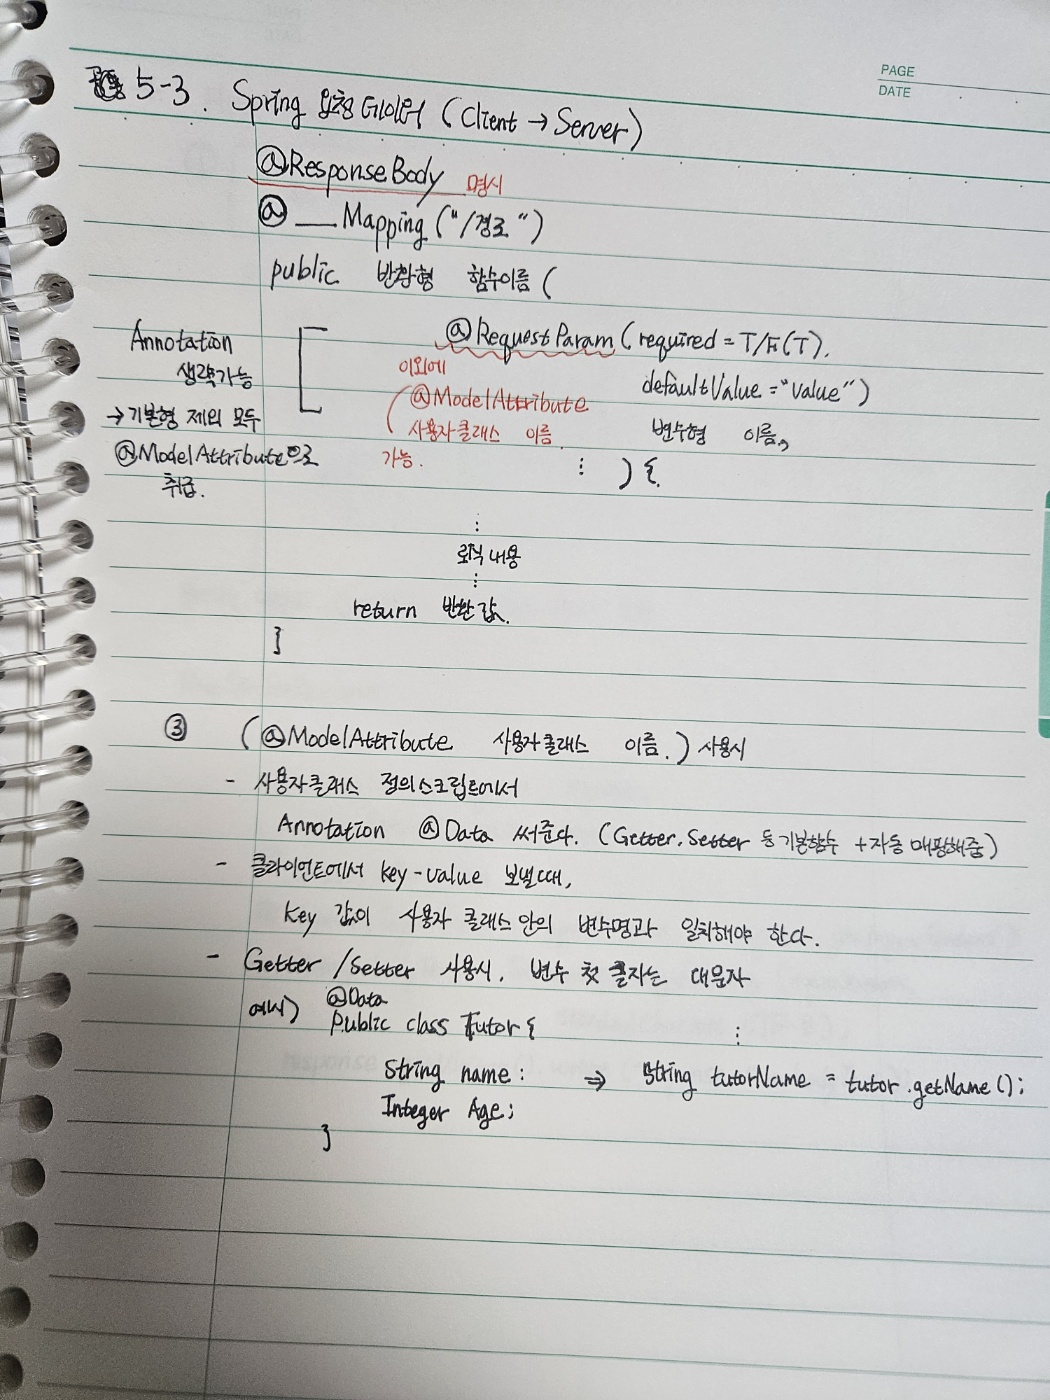 PAGE
DATE
5-3. Spring 요청 데이터 (Client → Server)
@ResponseBody 명시
@ ___ Mapping ("/경로")
public 반환형 함수이름 (
Annotation
생략가능
→ 기본형 제외 모두
@ModelAttribute으로
취급.
@RequestParam (required = T/F(T).
defaultValue = "value")
이외에
(@ModelAttribute
사용자클래스 이름
가능.
변수형 이름,
⋮ ) {
⋮
로직 내용
⋮
return 반환값.
}
③ (@ModelAttribute 사용자클래스 이름.) 사용시
- 사용자클래스 정의스크립트에서
Annotation @Data 써준다. (Getter, Setter 등 기본함수 + 자동 매핑해줌)
- 클라이언트에서 key-value 보낼때,
key 값이 사용자 클래스 안의 변수명과 일치해야 한다.
- Getter / Setter 사용시, 변수 첫 글자는 대문자
예시) @Data
Public class Tutor {
⋮
String name: ⇒ String tutorName = tutor.getName();
Integer Age;
}